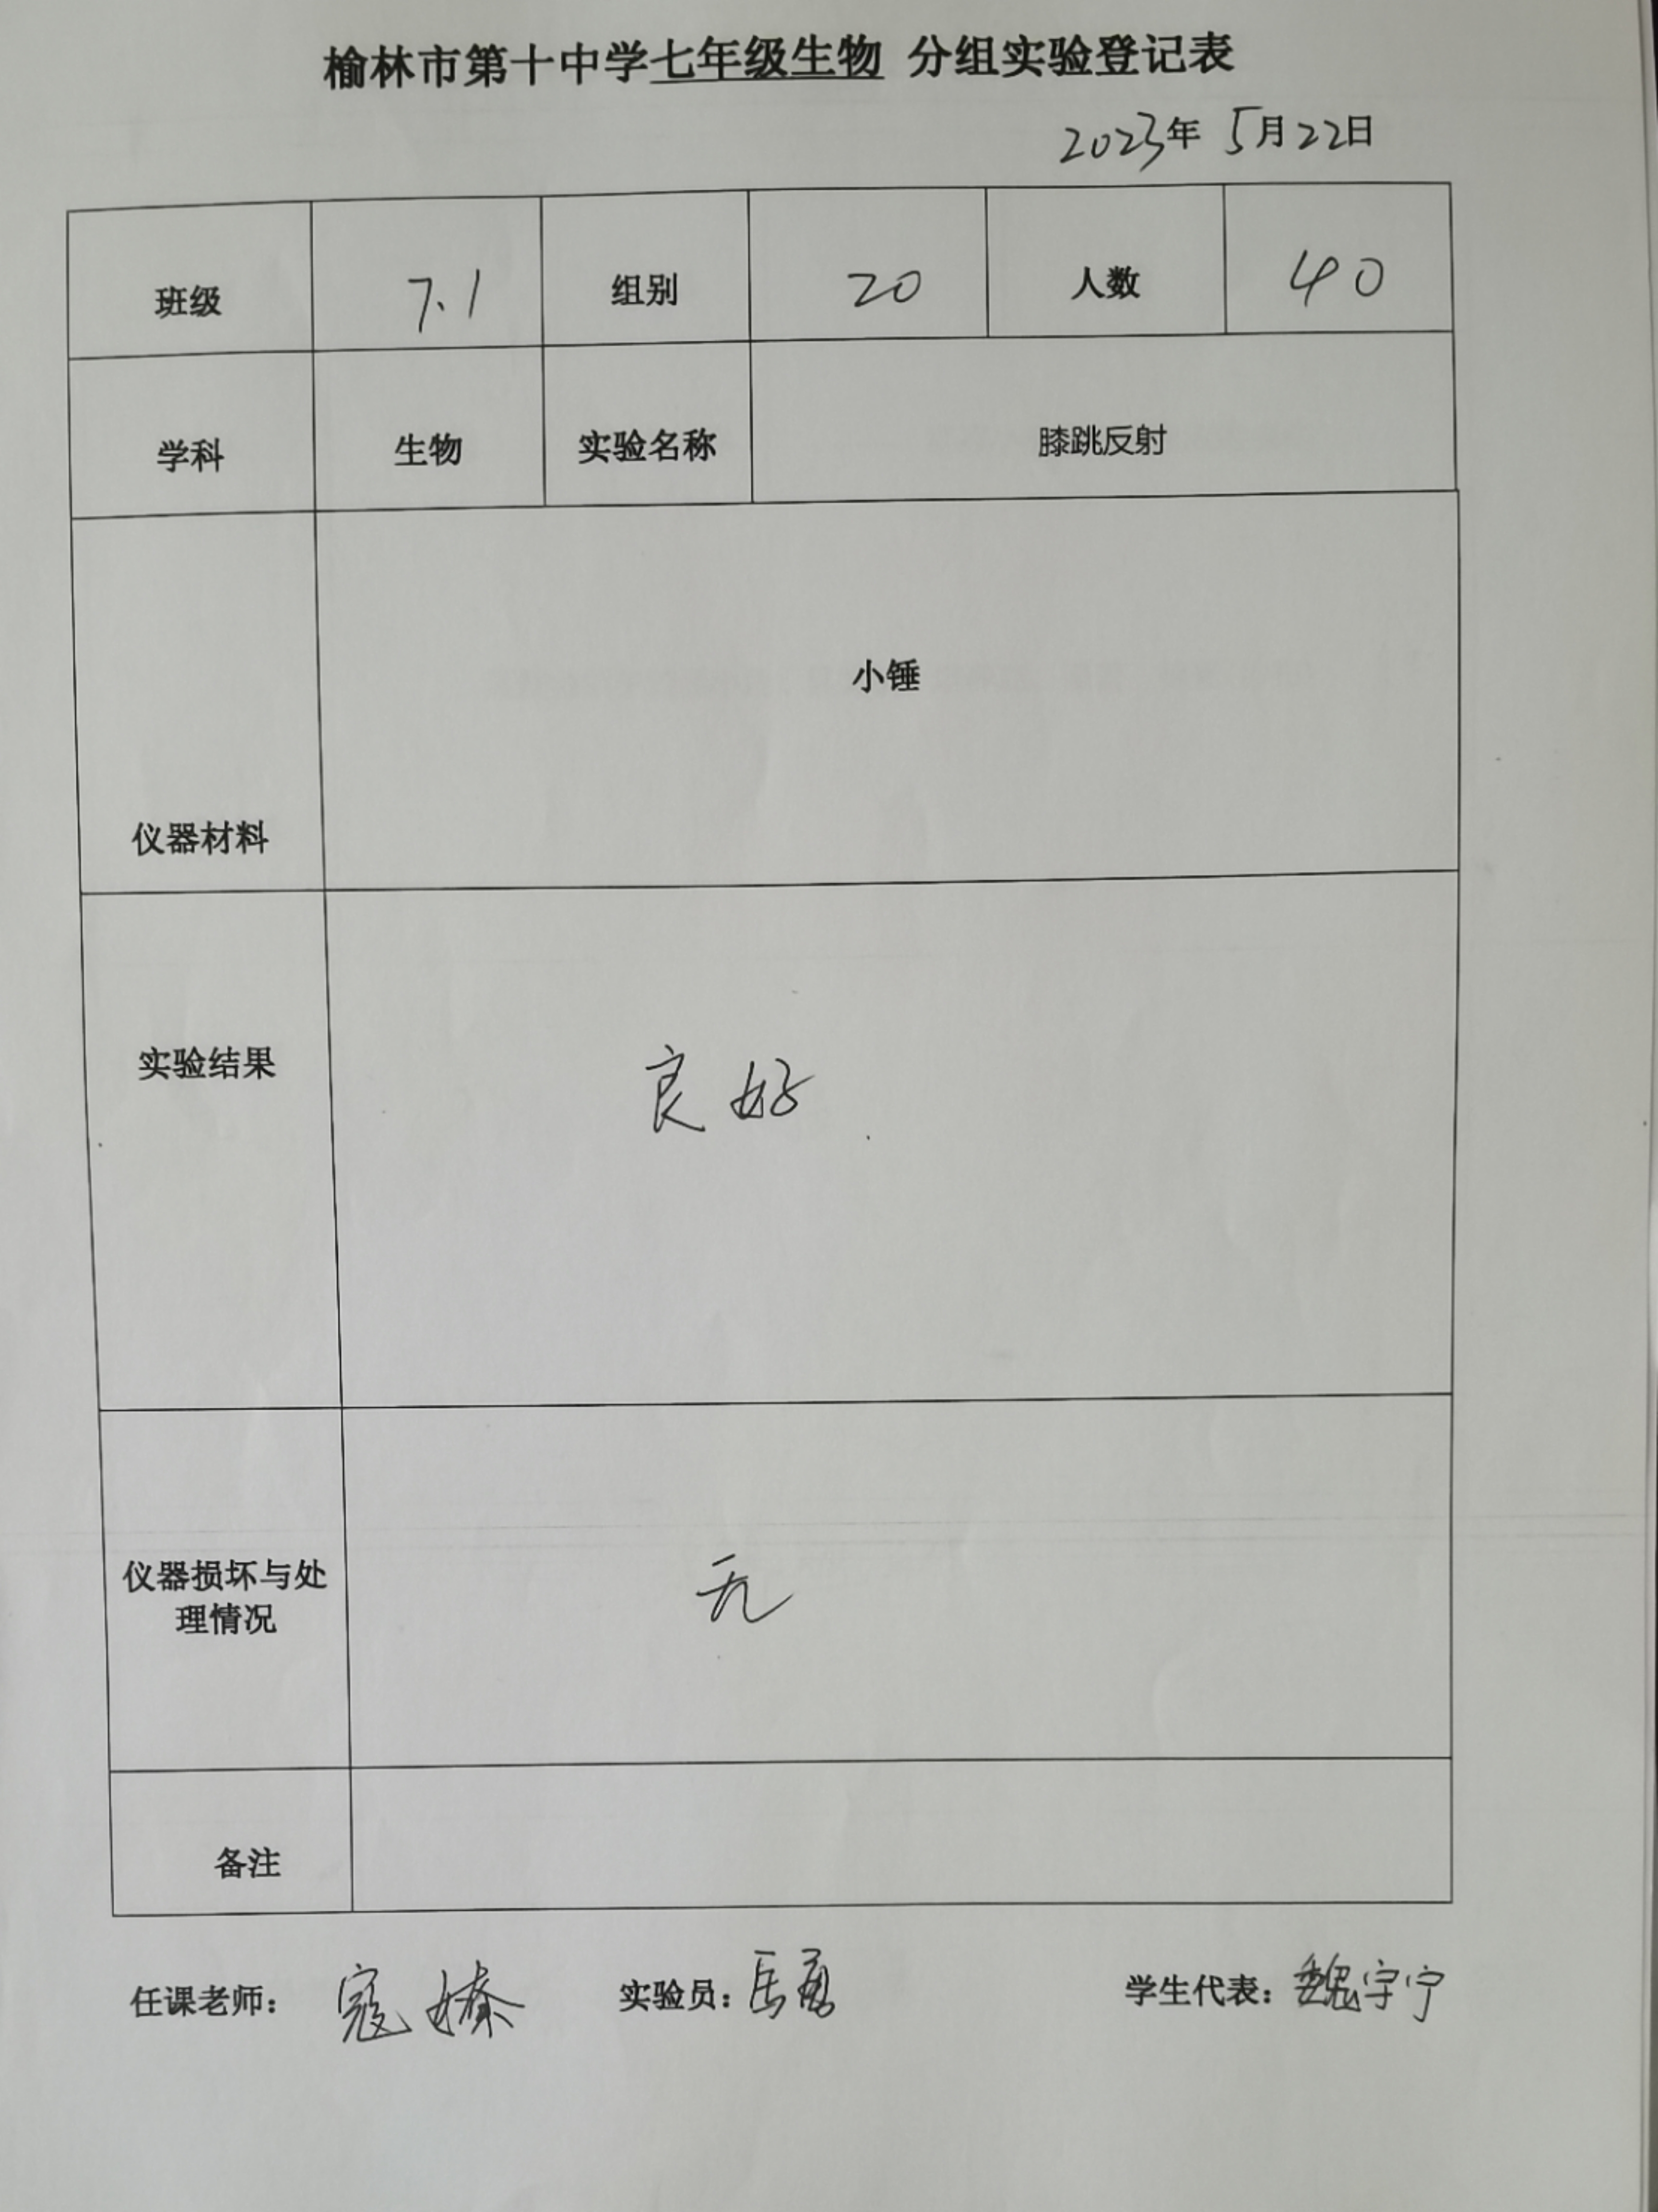 榆林市第十中学七年级生物 分组实验登记表
2023年 5月22日
班级 7.1 组别 20 人数 40
学科 生物 实验名称 膝跳反射
仪器材料 小锤
实验结果 良好
仪器损坏与处
理情况 无
备注
任课老师： 寇媛 实验员： 学生代表：魏宇宁